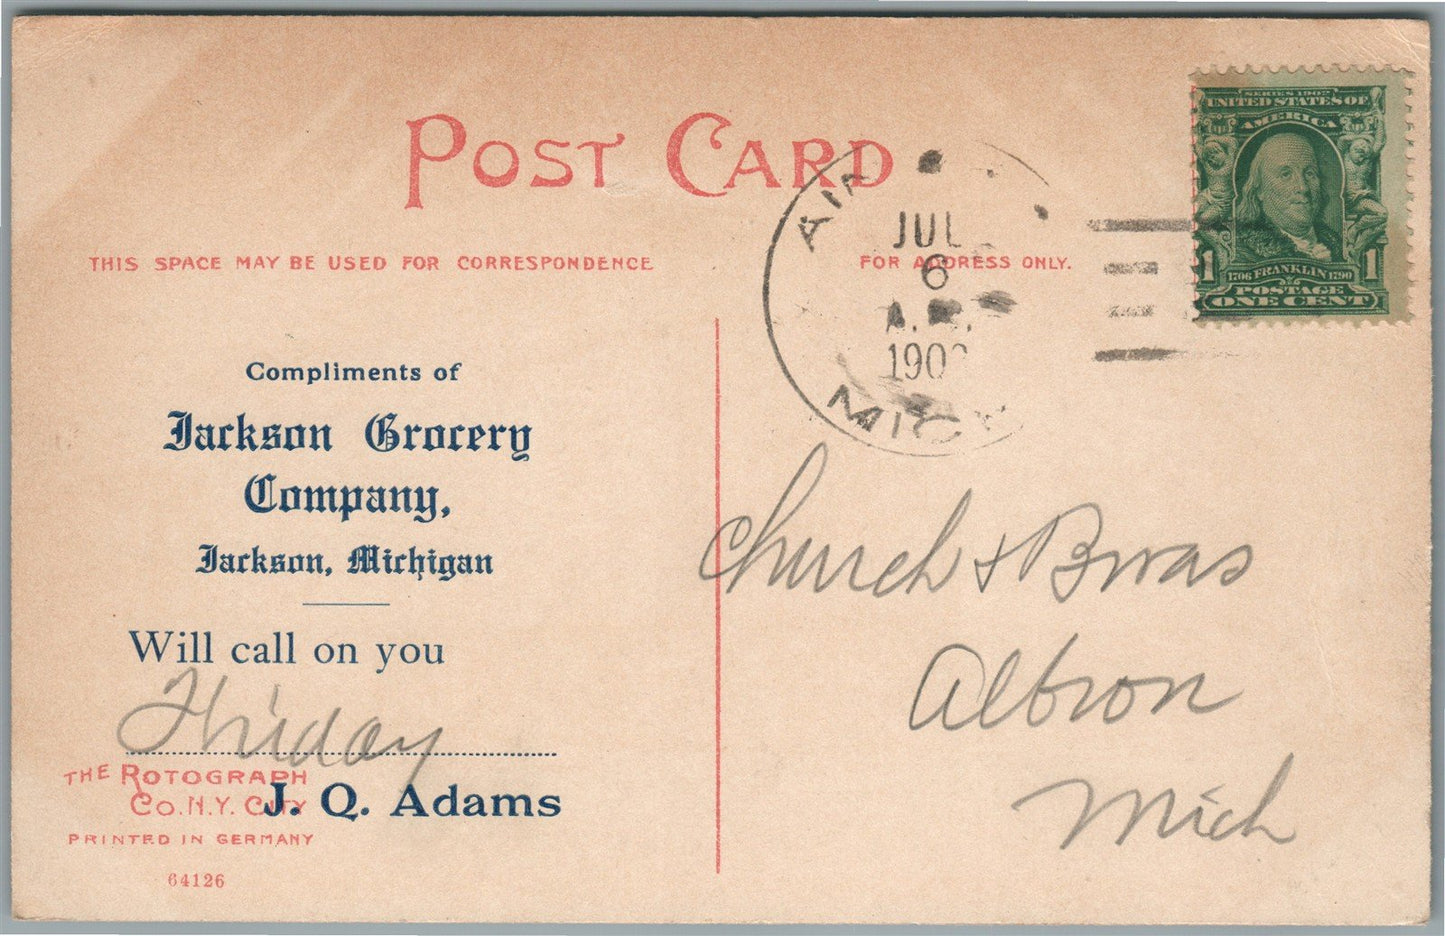 POST CARD
THIS SPACE MAY BE USED FOR CORRESPONDENCE
FOR ADDRESS ONLY.
Compliments of
Jackson Grocery
Company,
Jackson, Michigan
Will call on you
Friday
J. Q. Adams
THE ROTOGRAPH
CO. N.Y. CITY
PRINTED IN GERMANY
64126
JUL
6
A.M.
190
MICH
SERIES 1902
UNITED STATES OF
AMERICA
1706 FRANKLIN 1790
POSTAGE
1 1
ONE CENT
Church &
Albion
Mich